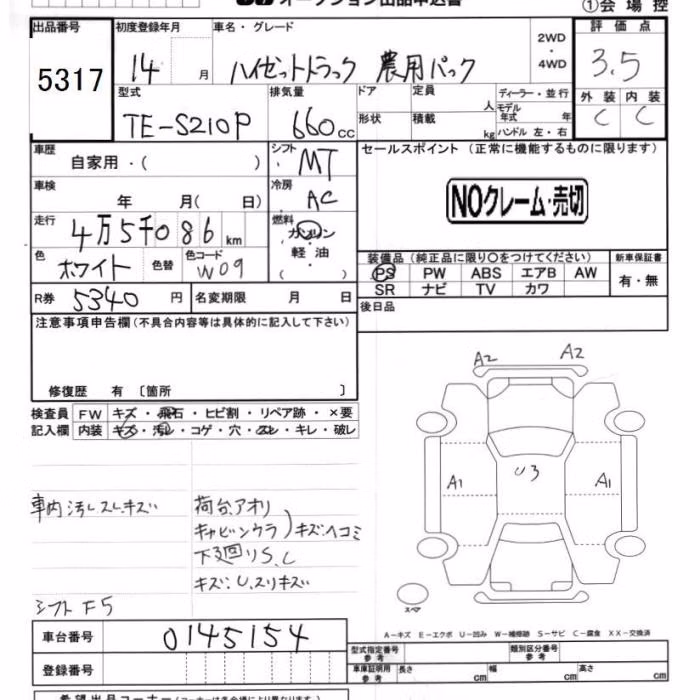 ①会 場 控
出品番号 初度登録年月 車名・グレード 2WD・4WD 評 価 点
5317 14 月 ハイゼットトラック 農用パック 3.5
型式 排気量 ドア 定員 人 ディーラー・並行 外 装 内 装
TE-S210P 660cc 形状 積載 kg モデル年式 年 ハンドル 左・右 C C
車歴 自家用・( ) シフト MT セールスポイント (正常に機能するものに限ります)
車検 年 月( 日) 冷房 AC NOクレーム・売切
走行 4万5千086km 燃料 ガソリン・軽 油・( )
色 ホワイト 色替 色コード W09 装備品(純正品に限り○をつけてください) 新車保証書
PS PW ABS エアB AW 有・無
SR ナビ TV カワ
R券 5340 円 名変期限 月 日 後日品
注意事項申告欄(不具合内容等は具体的に記入して下さい)
修復歴 有 〔箇所 〕
検査員 FW キズ・飛石・ヒビ割・リペア跡・×要
記入欄 内装 キズ・汚レ・コゲ・穴・スレ・キレ・破レ
A2 A2
A1 U3 A1
車内汚レスレキズ 荷台アオリ
キャビンウラ)キズ.ヘコミ
下廻りS.C
キズ.U.スリキズ
シフト F5 スペア
A-キズ E-エクボ U-凹み W-補修跡 S-サビ C-腐食 XX-交換済
車台番号 0145154
型式指定番号 参 考 類別区分番号 参 考
登録番号 車庫証明用 参 考 長さ cm 幅 cm 高さ cm